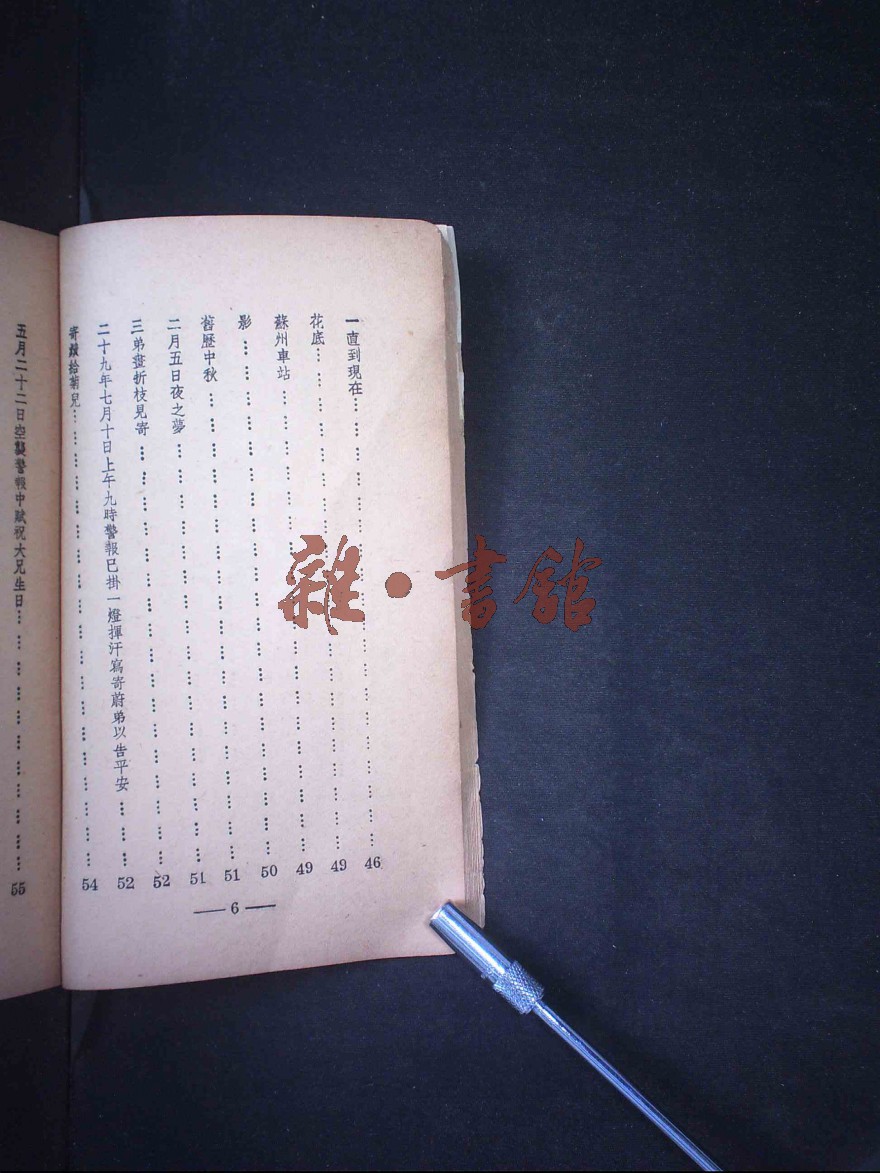 一直到現在……………………………………46
花底……………………………………49
蘇州車站……………………………………49
影……………………………………50
舊歷中秋……………………………………51
二月五日夜之夢……………………………………51
三弟畫折枝見寄……………………………………52
二十九年七月十日上午九時警報已掛一燈揮汗寫寄蔚弟以告平安………52
寄 給菊兒……………………………………54
— 6 —
五月二十二日空襲警報中賦祝大兄生日……………………………………55
雜·書館